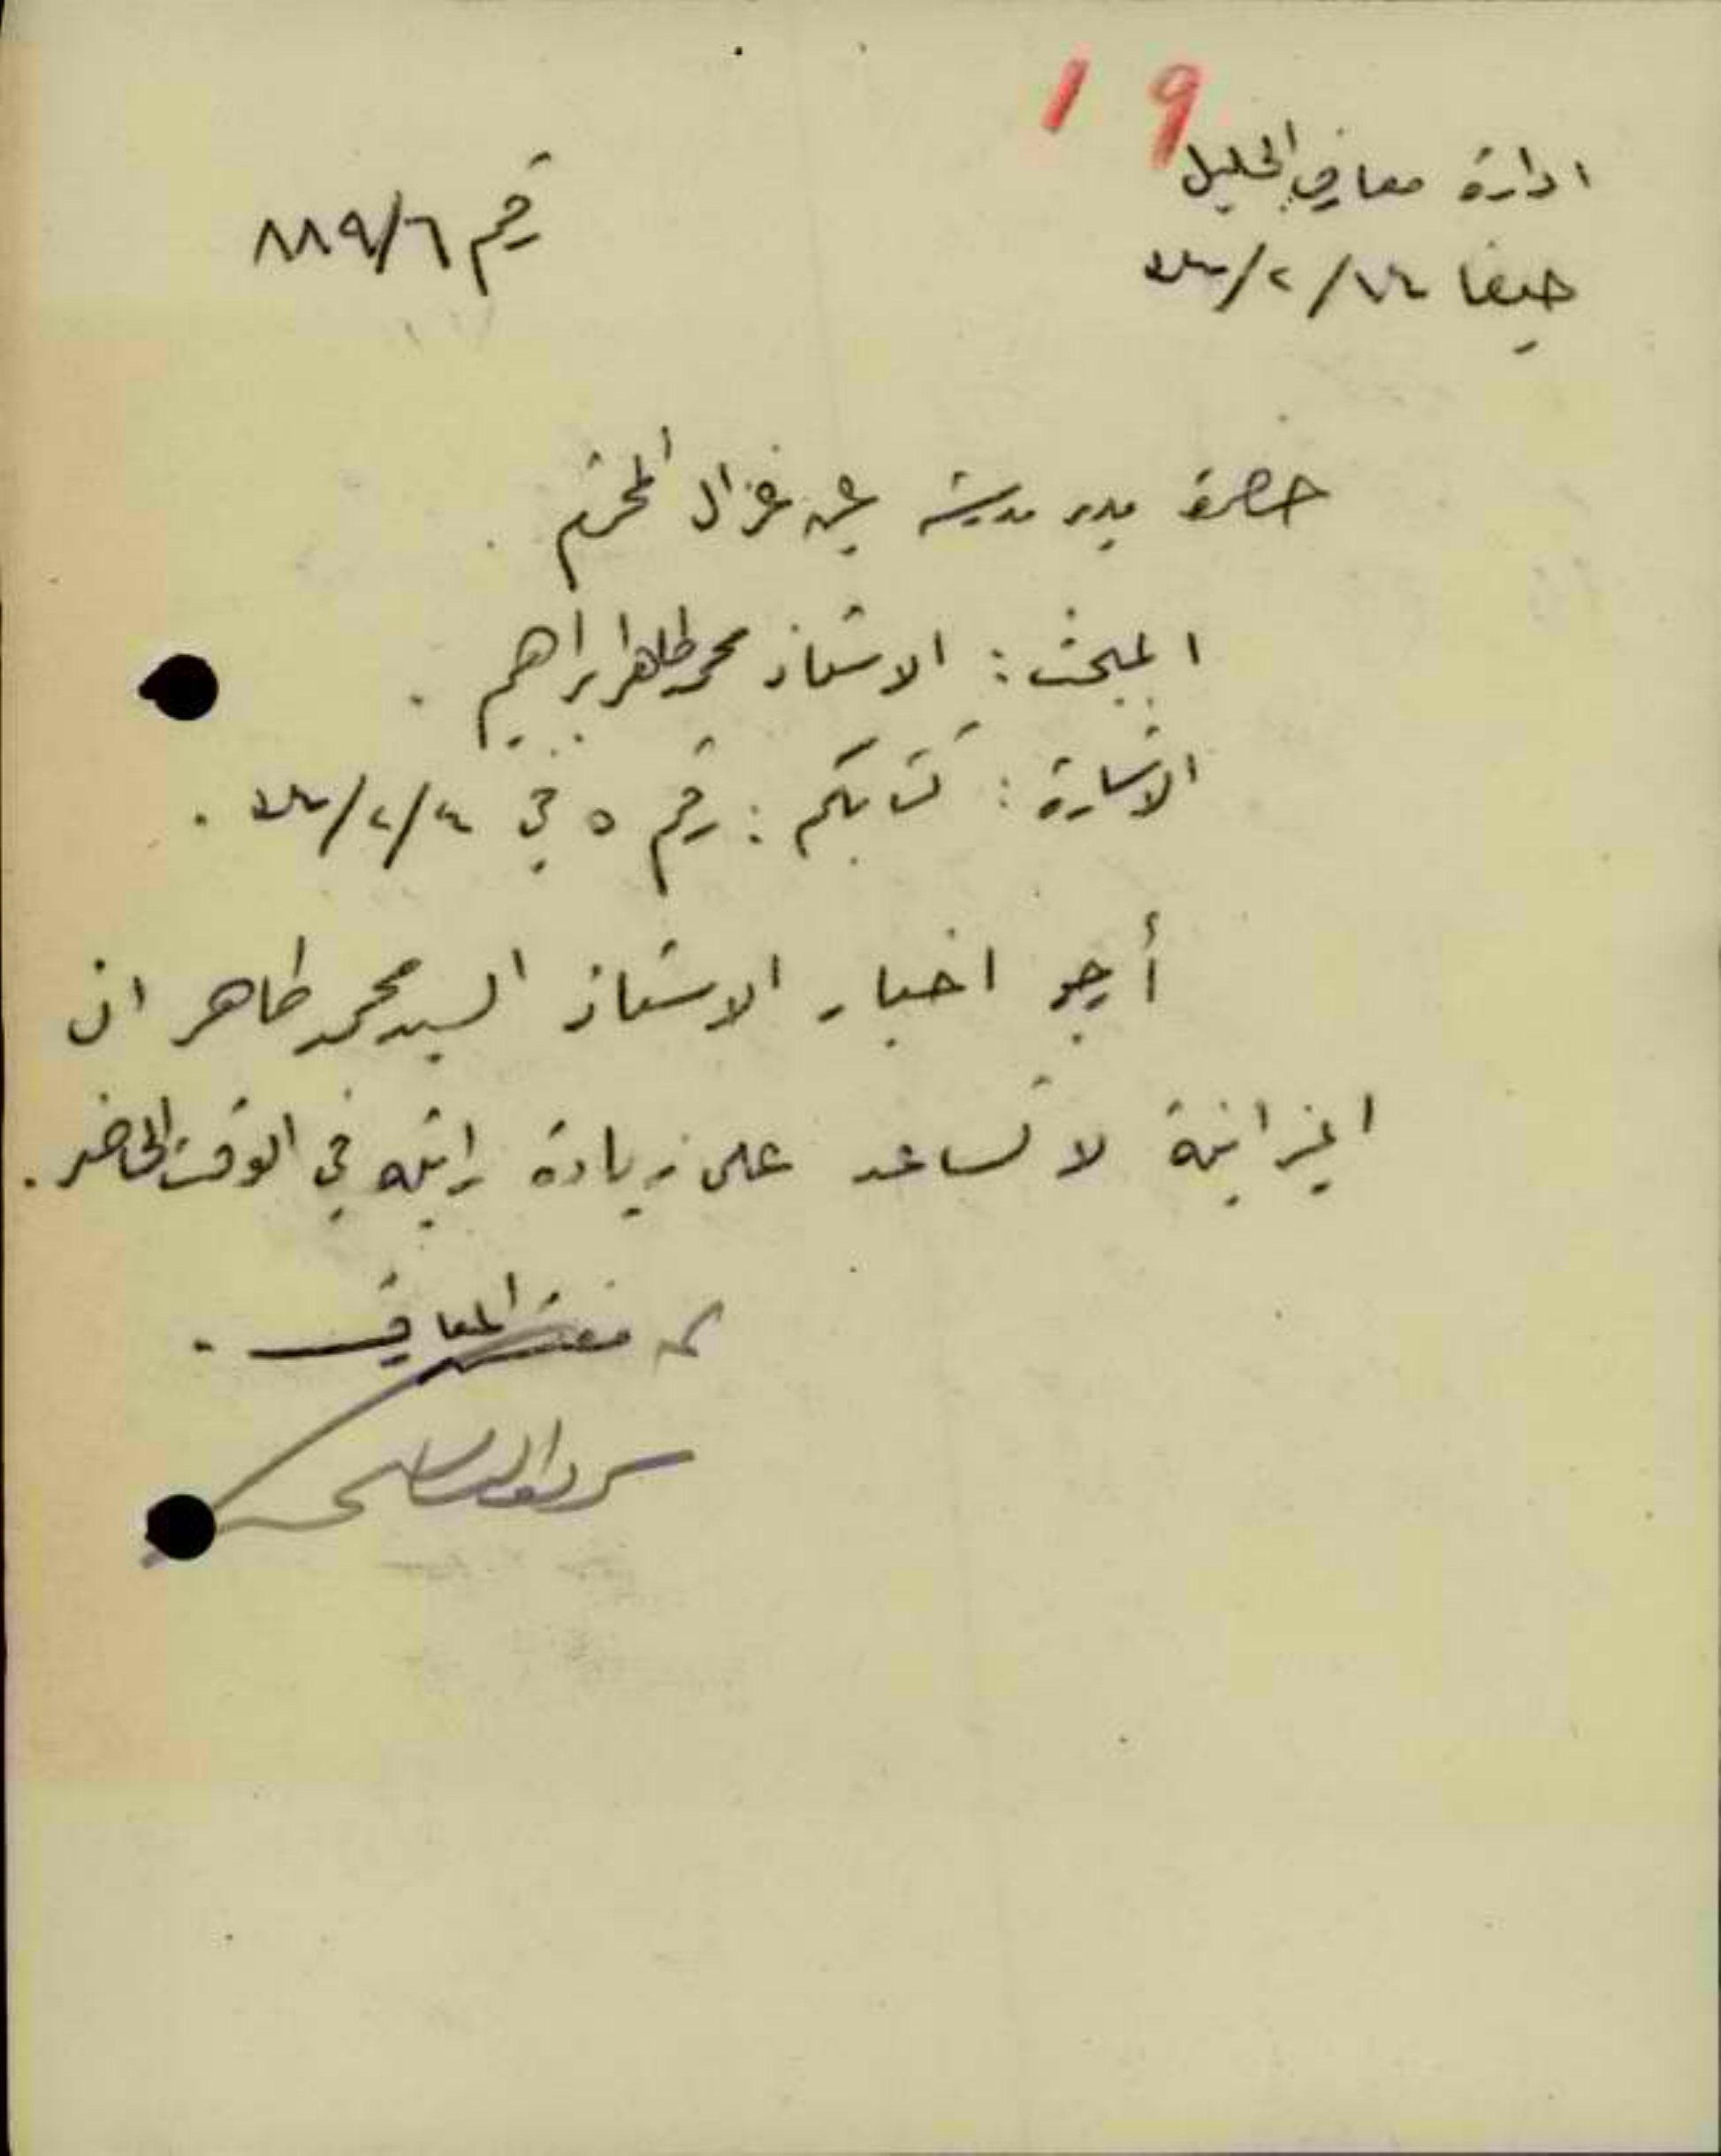 19
ادارة معارف الجليل
حيفا
رقم ٨٨٩/٦
حضرة مدير مدرسة عين غزال المحترم .
المبحث : الاستاذ محمد طاهر ابراهيم .
الاشارة : كتابكم : رقم ٥ في
أرجو اخبار الاستاذ السيد محمد طاهر ان
الميزانية لا تساعد على زيادة راتبه في الوقت الحاضر .
مفتش المعارف .